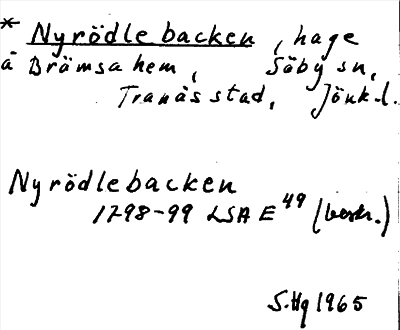 * Nyrödlebacken, hage
å Brämsahem, Säby sn,
Tranås stad, Jönk.l.
Nyrödlebacken
1798-99 LSA E 49 (beskr.)
S.Hg 1965